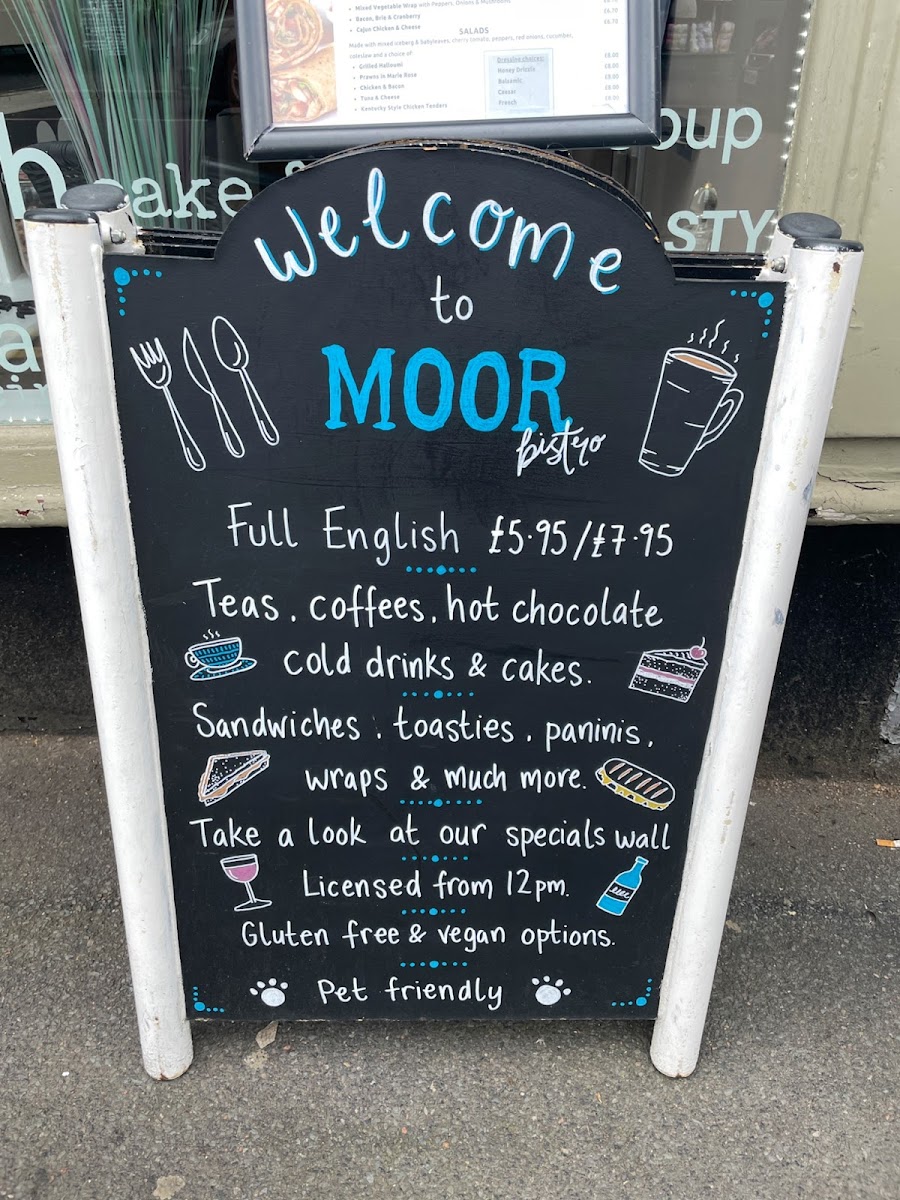 Mixed Vegetable Wrap with Peppers, Onions & Mushrooms
Bacon, Brie & Cranberry
£6.70
Cajun Chicken & Cheese
£6.70
SALADS
Made with mixed iceberg & babyleaves, cherry tomato, peppers, red onions, cucumber,
coleslaw and a choice of
Grilled Halloumi
£8.00
Prawns in Marie Rose
£8.00
Chicken & Bacon
£8.00
Tuna & Cheese
£8.00
Kentucky Style Chicken Tenders
Dressing choices:
Honey Drizzle
Balsamic
Caesar
French
oup
cake
STY
Welcome
to
MOOR
bistro
Full English £5.95/£7.95
Teas, coffees, hot chocolate
cold drinks & cakes.
Sandwiches, toasties, paninis,
wraps & much more.
Take a look at our specials wall
Licensed from 12pm.
Gluten free & vegan options.
Pet friendly